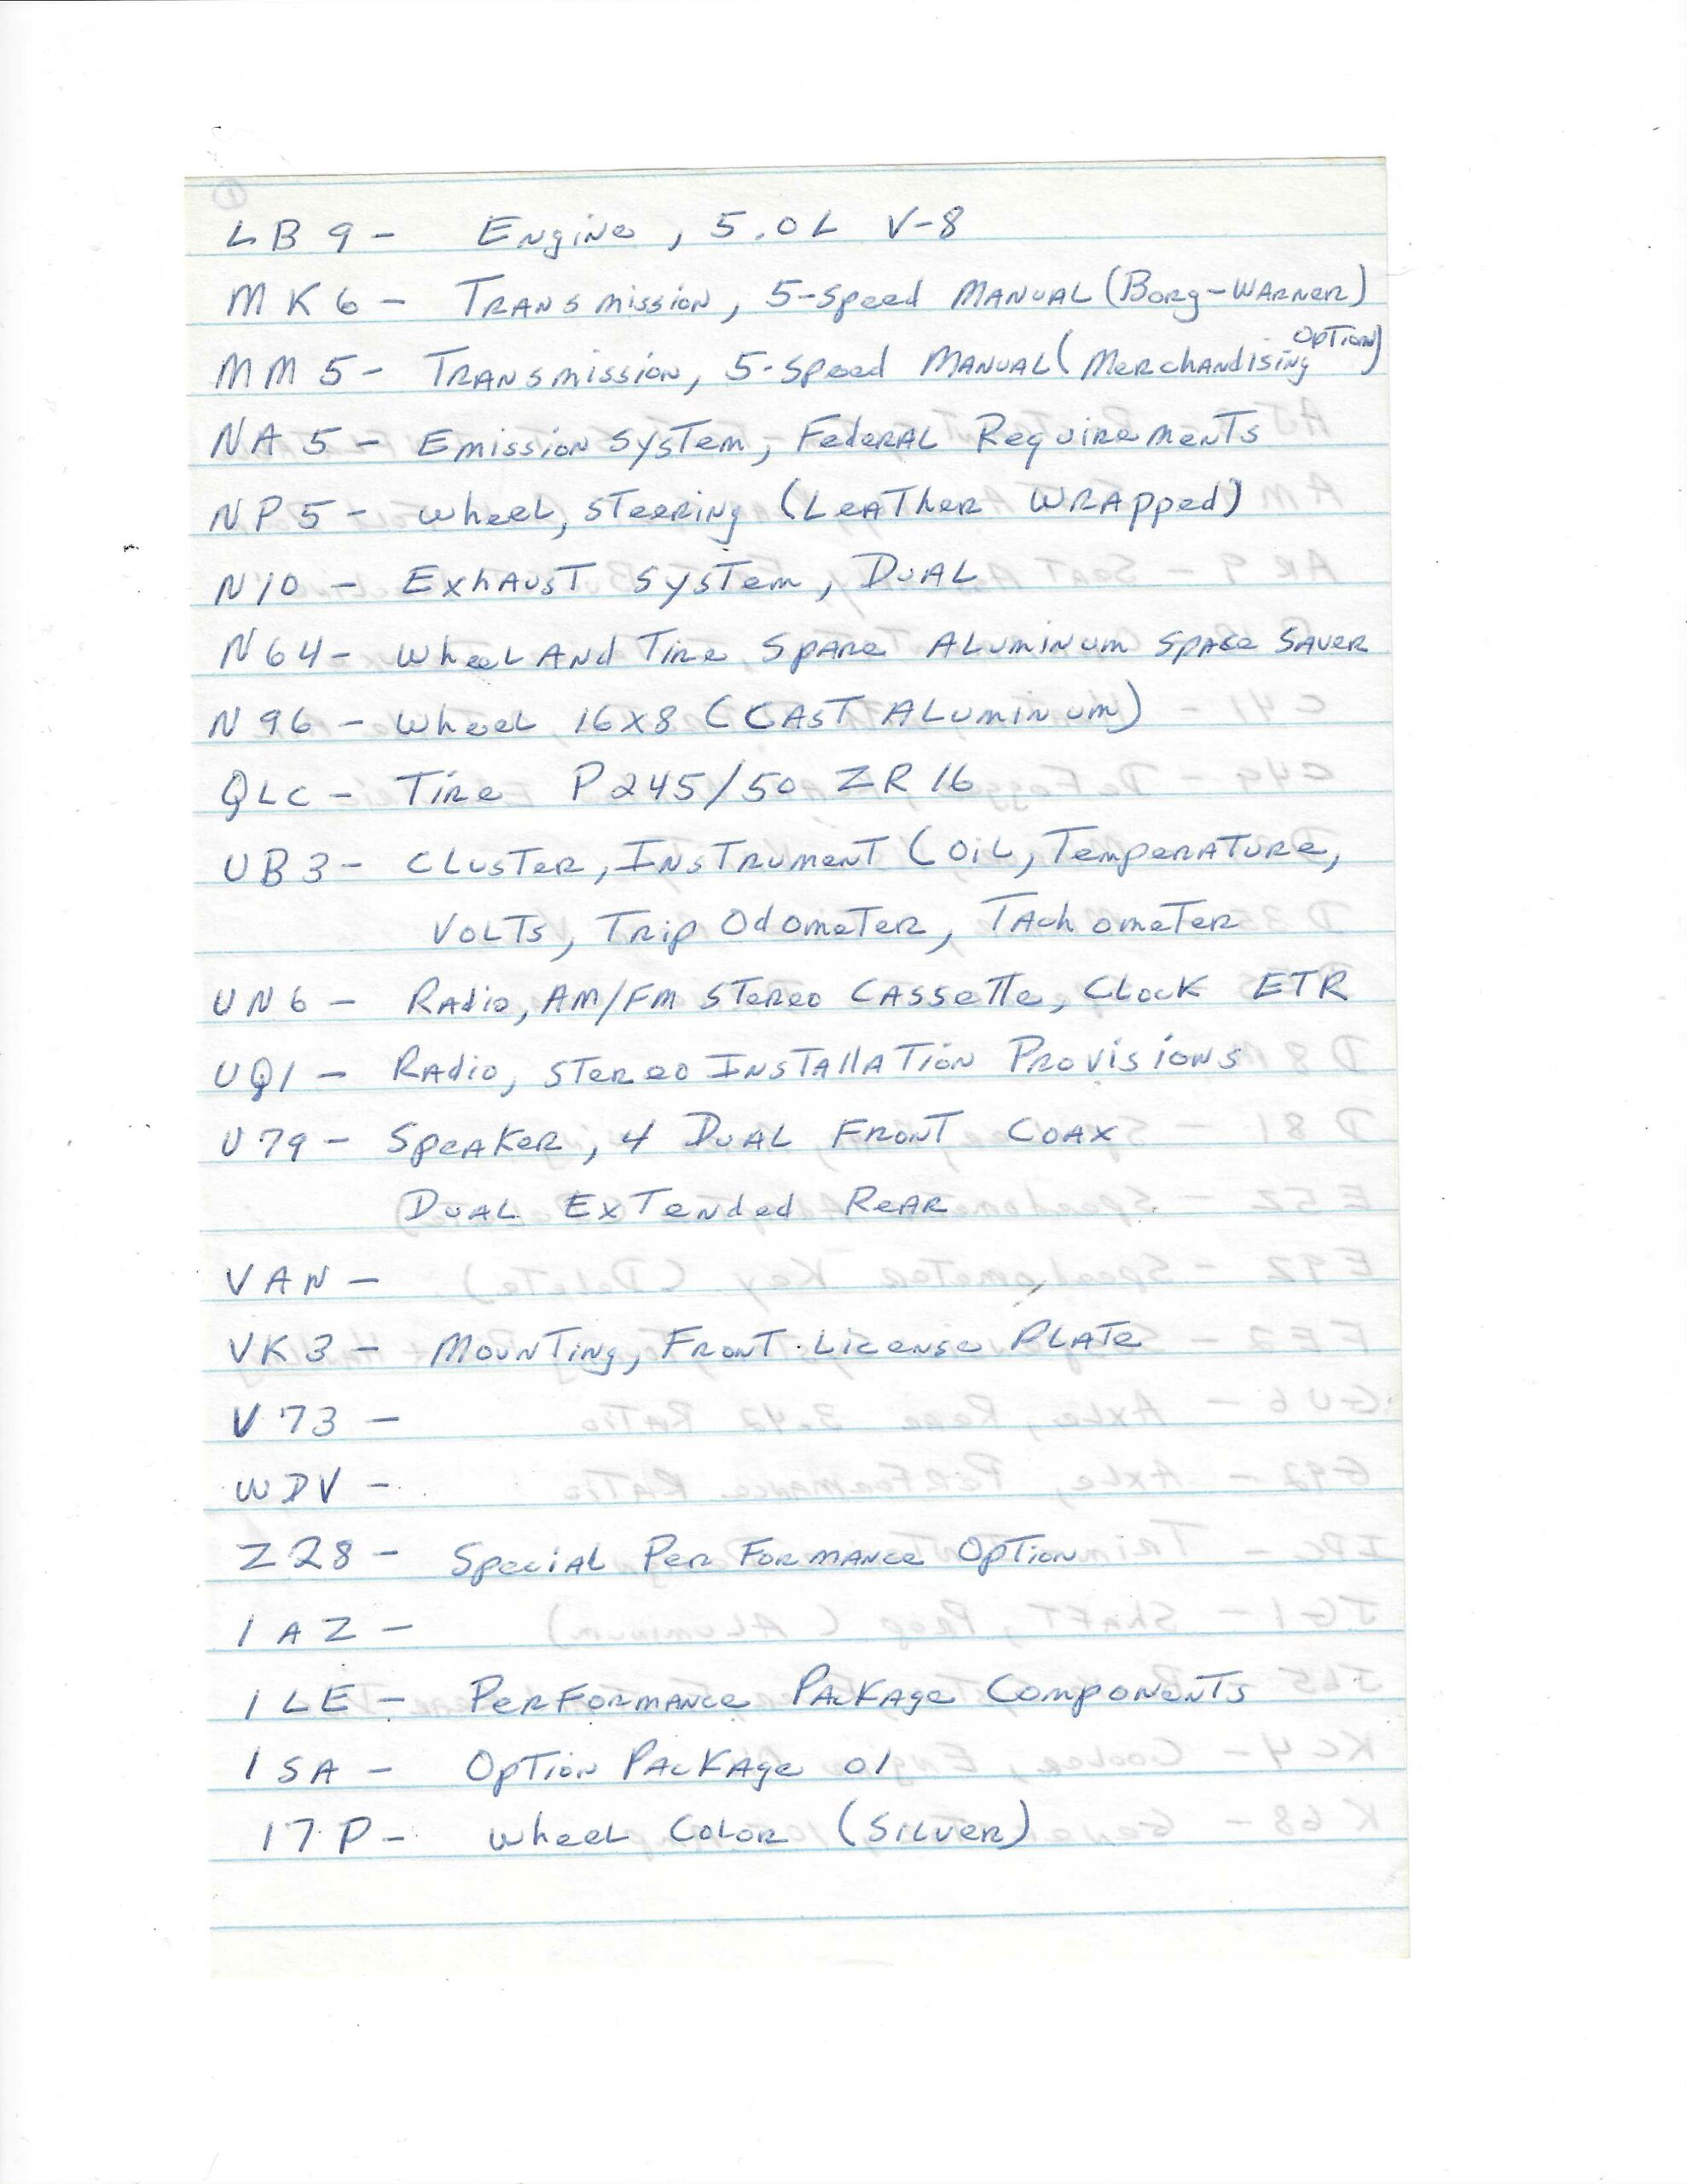 LB9 - Engine, 5.0L V-8
MK6 - Transmission, 5-Speed Manual (Borg-Warner)
MM5 - Transmission, 5-Speed Manual (Merchandising Option)
NA5 - Emission System, Federal Requirements
NP5 - Wheel, Steering (Leather Wrapped)
N10 - Exhaust System, Dual
N64 - Wheel And Tire, Spare Aluminum Space Saver
N96 - Wheel 16x8 (Cast Aluminum)
QLC - Tire P245/50 ZR16
UB3 - Cluster, Instrument (Oil, Temperature,
Volts, Trip Odometer, Tachometer
UN6 - Radio, AM/FM Stereo Cassette, Clock ETR
UQ1 - Radio, Stereo Installation Provisions
U79 - Speaker, 4 Dual Front Coax
Dual Extended Rear
VAN -
VK3 - Mounting, Front License Plate
V73 -
WDV -
Z28 - Special Performance Option
1AZ -
1LE - Performance Package Components
1SA - Option Package 01
17P - Wheel Color (Silver)